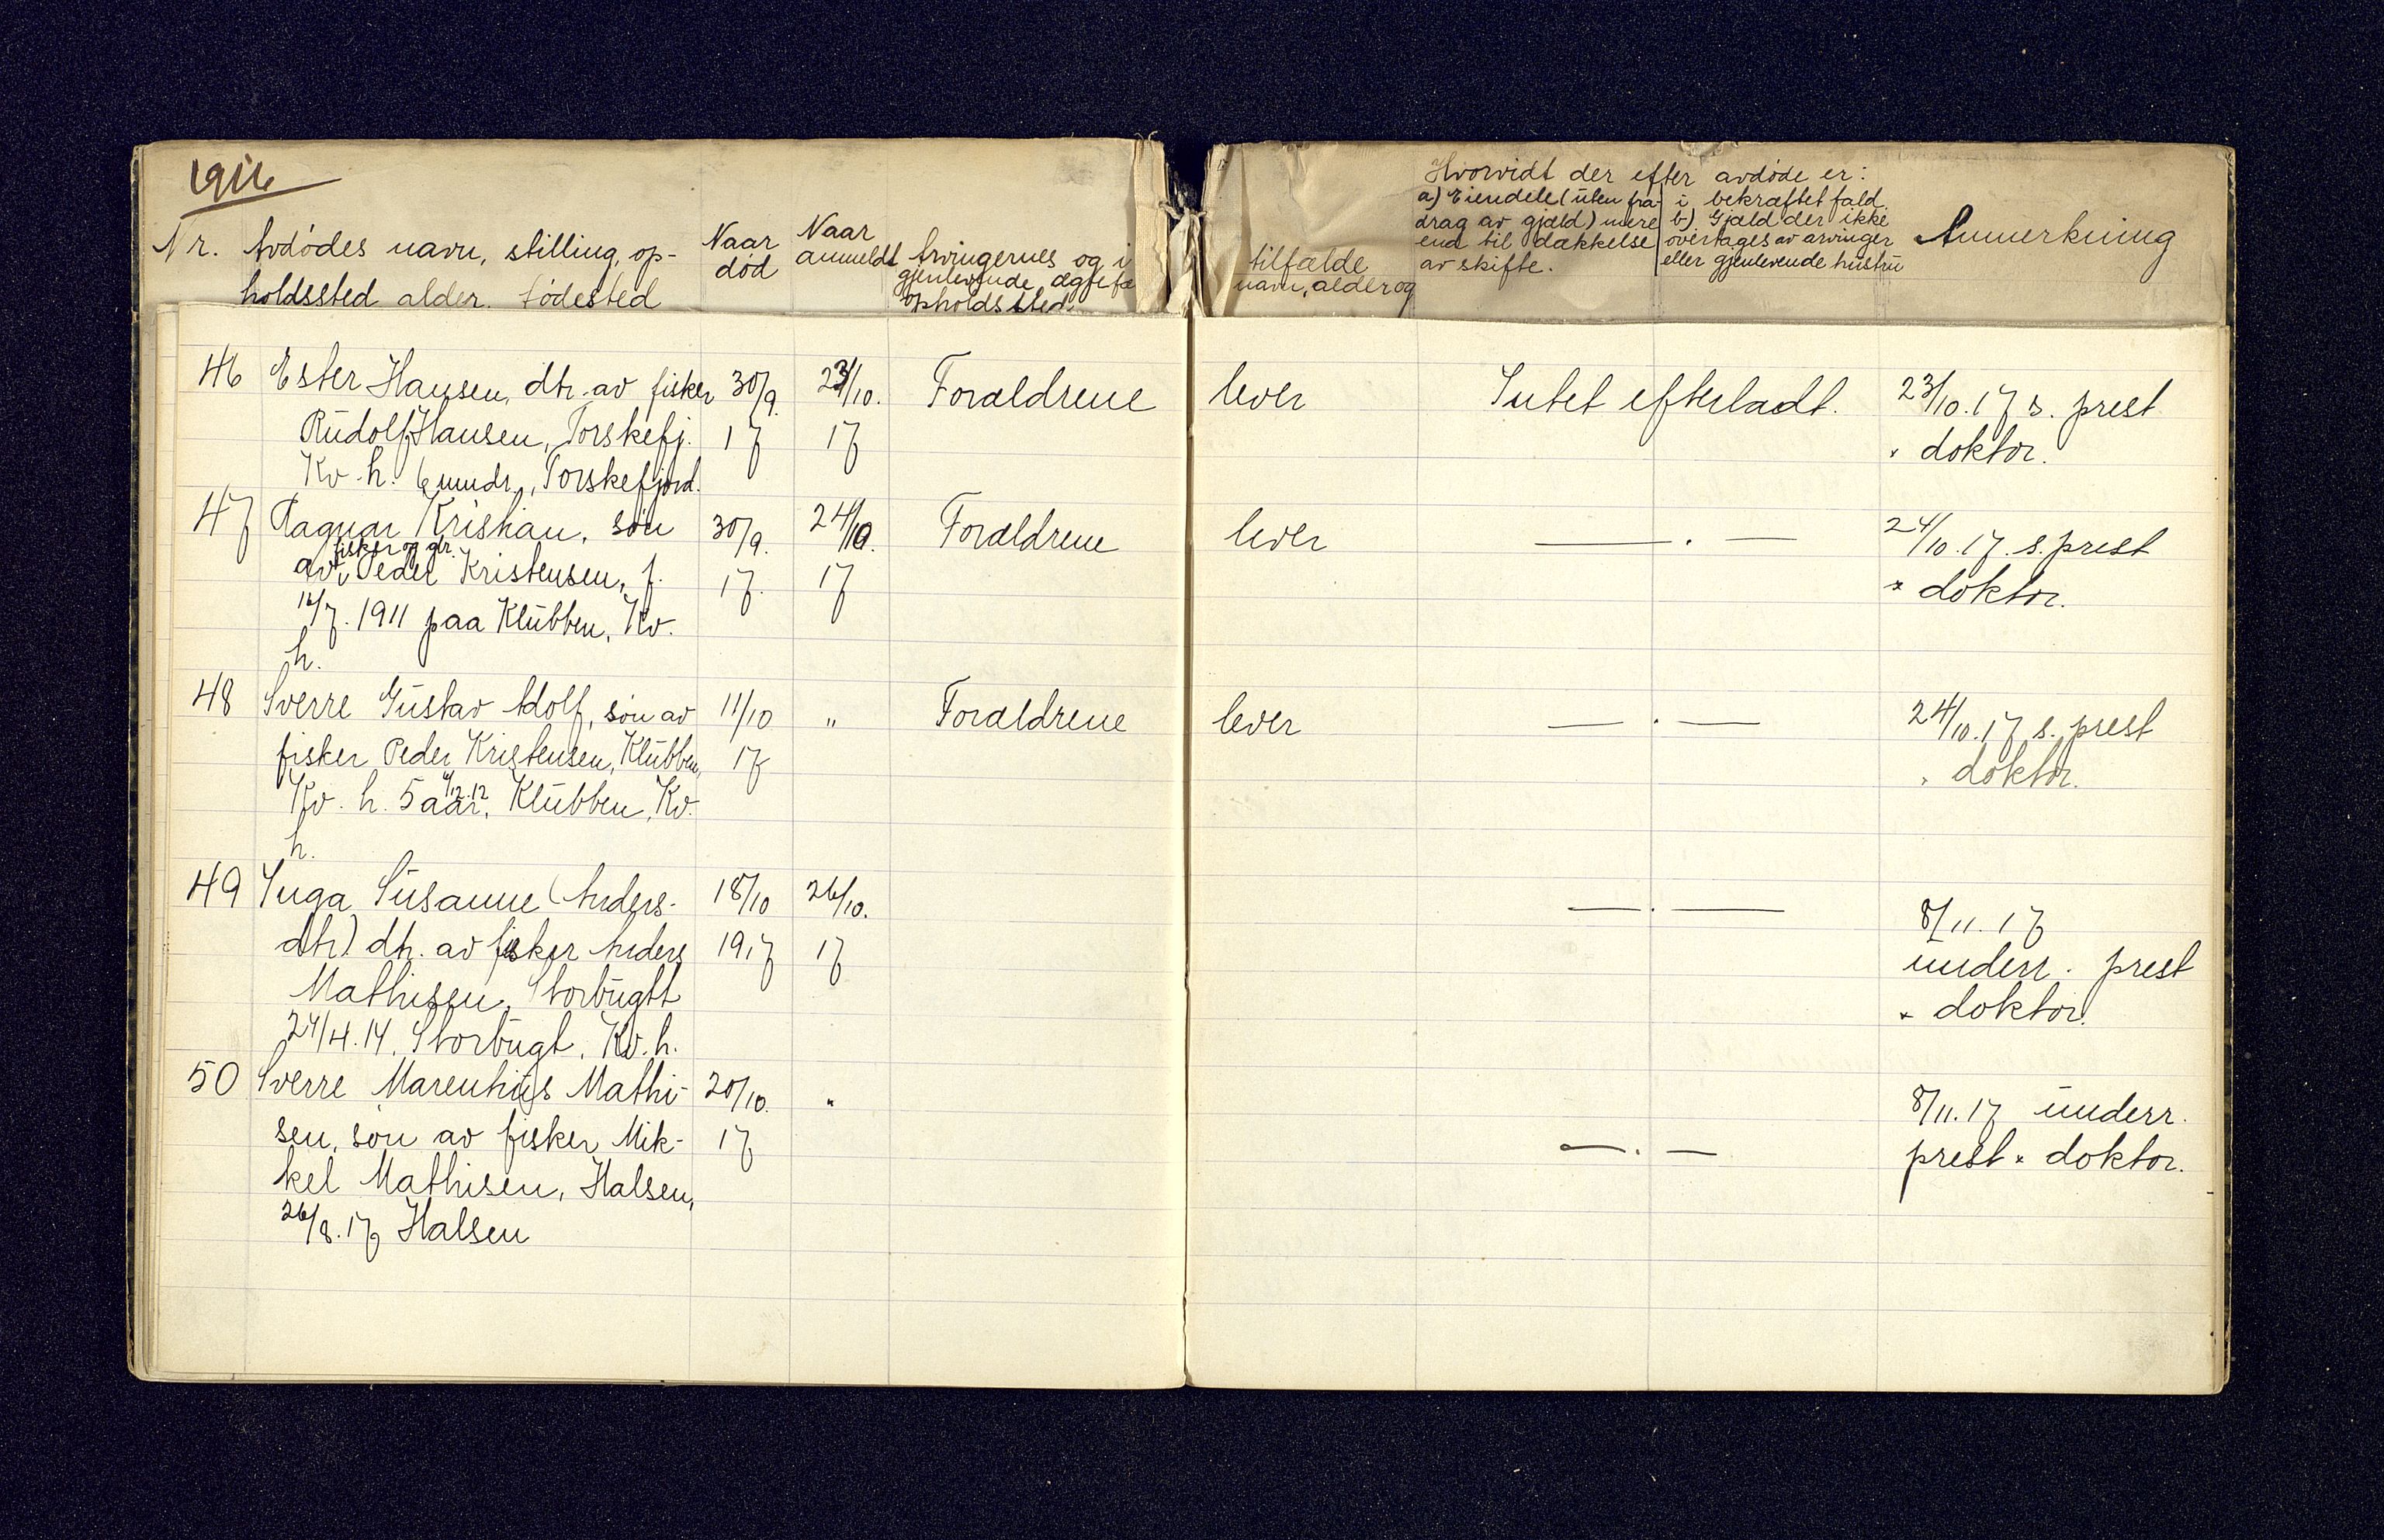 1916
Nr. Avdödes navn, stilling, op-
holdssted alder. födested
Naar
död
Naar
anmeldt
Arvingernes og i
gjenlevende ægtefæ
opholdssted
tilfælde
navn, alder og
Hvorvidt der efter avdöde er:
a) Eiendele (uten fra-
drag av gjæld) mere
end til dækkelse
av skifte.
i bekræftet fald
b) Gjæld der ikke
overtages av arvinger
eller gjenlevende hustru
Anmerkning
46 Ester Hansen, dtr. av fisker 30/9. 23/10. Forældrene lever Intet efterladt. 23/10.17 s. prest
Rudolf Hansen, Torskefj. 17 17 " doktor.
Kv. h. 6 mndr., Torskefjord.
47 Ragnar Kristian, sön 30/9. 24/10. Forældrene lever — . — 24/10.17. s. prest
fisker og gbr.
av Peder Kristensen, f. 17. 17 " doktor.
16/7. 1911 paa Klubben, Kv.
h.
48 Sverre Gustav Adolf, sön av 11/10 " Forældrene lever — . — 24/10.17 s. prest
fisker Peder Kristensen, Klubben, 17 " doktor.
Kv. h. 5 aar, Klubben, Kv.
h.
49 Inga Susanne (Anders- 18/10 26/10. — . — 8/11. 17
dtr) dtr. av fisker Anders 1917 17 underr. prest
Mathisen, Storbugtt " doktor.
24/4.14. Storbugt, Kv. h.
50 Sverre Marenhius Mathi- 20/10. " 8/11.17 underr.
sen, sön av fisker Mik- 17 — . — prest " doktor.
kel Mathisen, Halsen,
26/8.17 Halsen